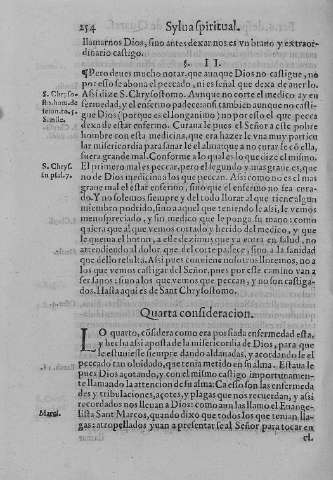 254 Sylua spiritual.
llamarnos Dios, sino antes dexarnos es vn brauo y extraor-
dinario castigo.
§. II.
¶Pero deues mucho notar, que aunque Dios no castigue, no
por esso se abona el peccado, ni es señal que dexa de auerlo.
Assi dize S. Chrysostomo. Aunque no corte el medico ay en
fermedad, y el enfermo padece: ansi tambien aunque no casti-
gue Dios (porque es el longanimo) no por esso el que pecca
dexa de estar enfermo. Curaua le pues el Señor a este pobre
hombre con esta medicina, que era hazer le vna muy particu
lar misericordia para sanar le el alma: que a no curar se có ella,
fuera grande mal. Conforme a lo qual es lo que dize el mismo.
El primero mal es peccar, pero el segundo y mas graue es, que
no de Dios medicina a los que peccan. Assi como no es el mas
graue mal el estar enfermo, sino que el enfermo no sea curado.
Y no solemos siempre y del todo llorar al que tiene algun
miembro podrido, sino a aquel que teniendo le assi, le vemos
menospreciado, y sin medico que le ponga su mano: como
quiera que al que vemos cortado y herido del medico, y que
le quema el botor, a este dezimos que ya va en salud, no
attendiendo al dolor que del corte padece, sino a la sanidad
que dello resulta. Assi pues conuiene nosotros lloremos, no a
los que vemos castigar del Señor, pues por este camino van a
ser sanos: sino a los que vemos que peccan, y no son castiga-
dos. Hasta aqui es de Sant Chrysostomo.
S. Chryso-
sto. hom. de
S. Chrys.
in psal. 7.
Quarta consideracion.
LO quarto, cósidera como era porfiada enfermedad esta,
y hecha assi aposta de la misericordia de Dios, para que
le estuuiesse siempre dando aldauadas, y acordando le el
peccado tan oluidado, que tenia metido en su alma. Estaua le
pues Dios açotando, y con el mismo castigo importunamen-
te llamando la attencion de su alma: Ca esso son las enfermeda
des y tribulaciones, açotes, y plagas que nos recuerdan, y assi
recordados nos lleuan a Dios: como aun las llamo el Euange-
lista Sant Marcos, quando dixo que todos los que tenian lla-
gas: atropellados yuan a presentar se al Señor para tocar en
el.
Marci.